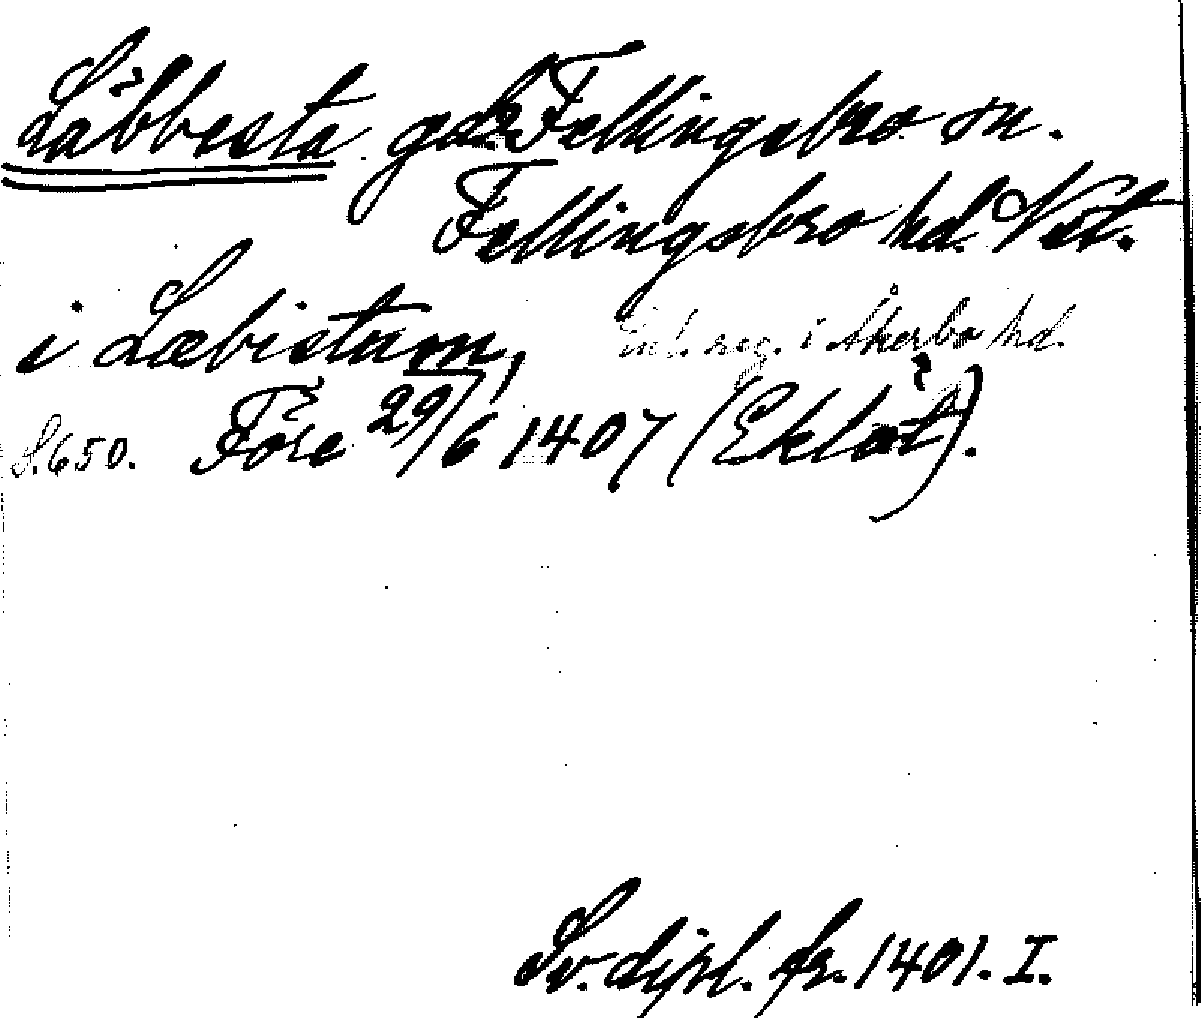 Läbbesta gdr Fellingsbro sn.
Fellingsbro hd. Vstl.
i Læbistum, Enl. reg. i Åkerbo hd.
S. 650. Före 29/6 1407 (Eklöt).
Sv. dipl. fr. 1401. I.